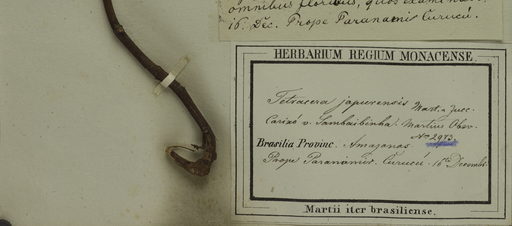 omnibus floribus, quos examinavi.
16. Dec. Prope Paranamis Curucú.
HERBARIUM REGIUM MONACENSE.
Tetracera japurensis Mart. & Zucc.
Carixó v. Sambaibinha. Martius Obsv.
No 2973
Brasilia Provinc. Amazonas
Prope Paranamir. Curucú. 16 Decembr.
Martii iter brasiliense.